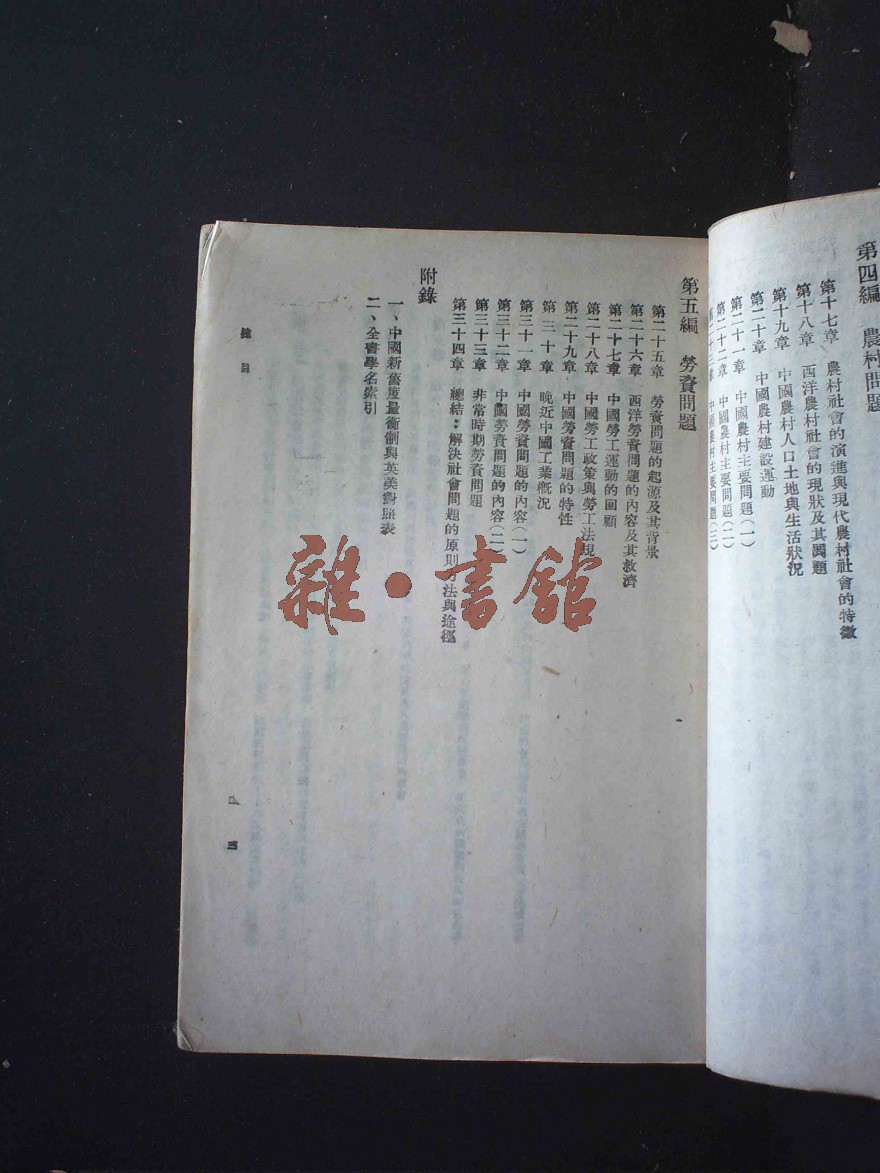 第四編　農村問題
第十七章　農村社會的演進與現代農村社會的特徵
第十八章　西洋農村社會的現狀及其問題
第十九章　中國農村人口土地與生活狀況
第二十章　中國農村建設運動
第二十一章　中國農村主要問題(一)
第二十二章　中國農村主要問題(二)
第二十三章　中國農村主要問題(三)
第五編　勞資問題
第二十五章　勞資問題的起源及其背景
第二十六章　西洋勞資問題的內容及其救濟
第二十七章　中國勞工運動的回顧
第二十八章　中國勞工政策與勞工法規
第二十九章　中國勞資問題的特性
第三十章　晚近中國工業概況
第三十一章　中國勞資問題的內容(一)
第三十二章　中國勞資問題的內容(二)
第三十三章　非常時期勞資問題
第三十四章　總結：解決社會問題的原則方法與途徑
附錄
一、中國新舊度量衡制與英美對照表
二、全書學名索引
總目
雜•書館